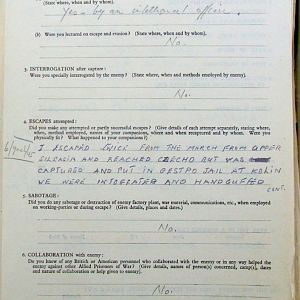 (State where, when and by whom).
Yes - by an intelligence officer.
(b) Were you lectured on escape and evasion? (State where, when and by whom).
No.
3. INTERROGATION after capture:
Were you specially interrogated by the enemy? (State where, when and methods employed by enemy).
No.
4. ESCAPES attempted:
Did you make any attempted or partly successful escapes? (Give details of each attempt separately, stating where, when, method employed, names of your companions, where and when recaptured and by whom. Were you physically fit? What happened to your companions?)
I ESCAPED TWICE FROM THE MARCH FROM UPPER
SILESIA AND REACHED CZECHO BUT WAS
CAPTURED AND PUT IN GESTPO JAIL AT KOLIN
WE WERE INTOERATED AND HANDCUFFED
CONT.
5. SABOTAGE:
Did you do any sabotage or destruction of enemy factory plant, war material, communications, etc., when employed on working-parties or during escape? (Give details, places and dates).
No.
6. COLLABORATION with enemy:
Do you know of any British or American personnel who collaborated with the enemy or in any way helped the enemy against other Allied Prisoners of War? (Give details, names of person(s) concerned, camp(s), dates and nature of collaboration or help given to enemy).
No.